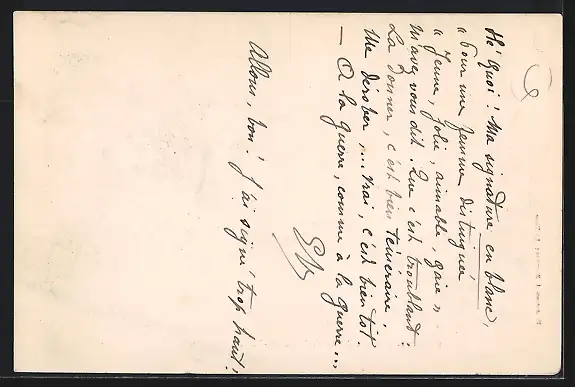 Hé quoi ! Ma signature, en blanc,
« Pour une femme distinguée
« Jeune, jolie, aimable, gaie »
M'avez vous dit. Que c'est troublant :
La donner, c'est bien téméraire
Me dérober,... vrai, c'est bien tôt.
— A la guerre, comme à la guerre...
Allons, bon ! J'ai signé trop haut !